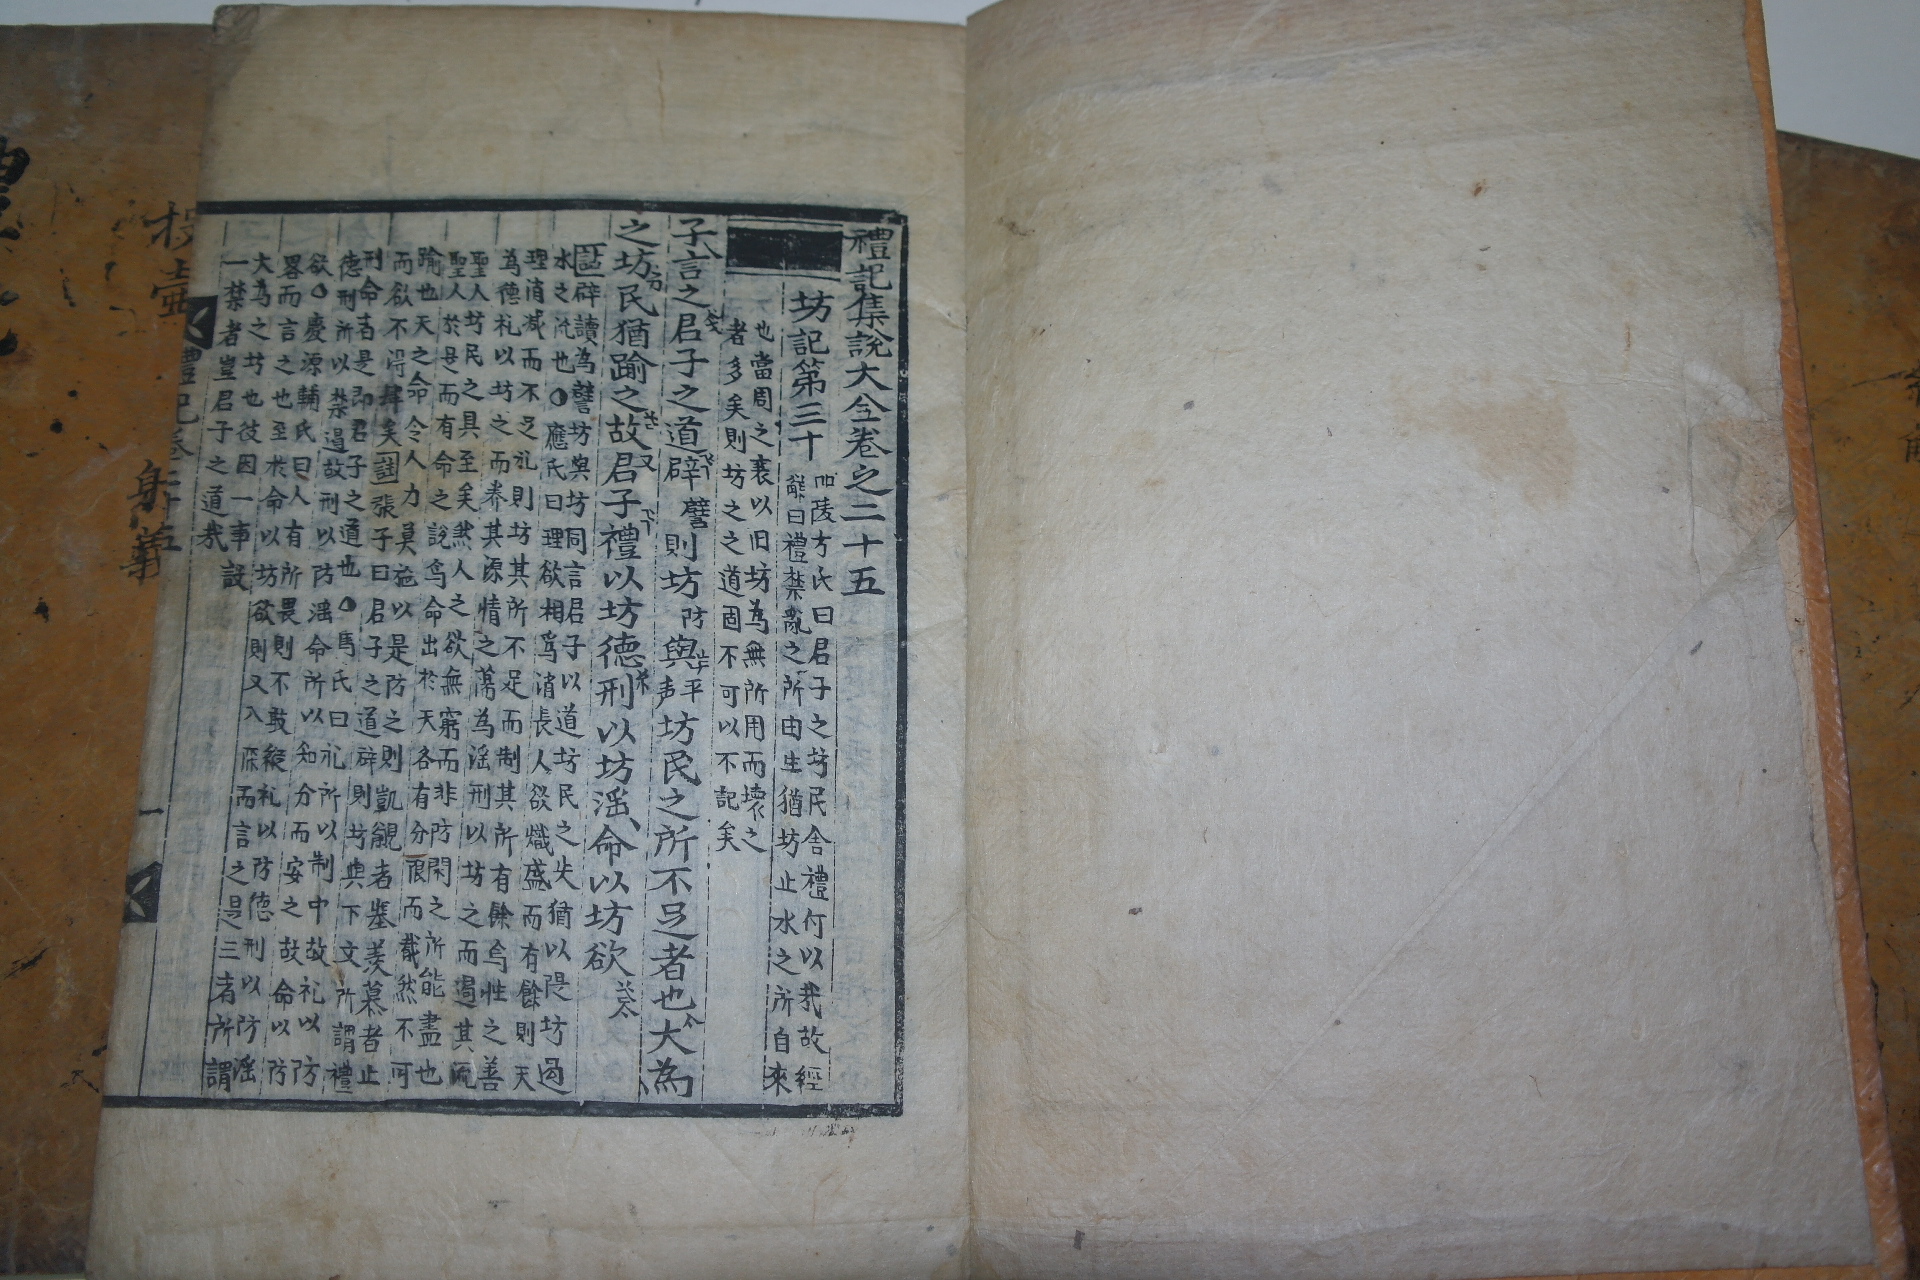 禮記集說大全卷之二十五
坊記第三十
嚴陵方氏曰君子之坊民舍禮何以哉故經
解曰禮禁亂之所由生猶坊止水之所自來
也當周之衰以旧坊為無所用而壞之
者多矣則坊之之道固不可以不記矣
子言之君子之道辟譬則坊防與平声坊民之所不足者也大為
之坊民猶踰之故君子禮以坊德刑以坊淫命以坊欲
註辟讀為譬坊與坊同言君子以道坊民之失猶以隄坊遏
水之流也○應氏曰理欲相為消長人欲熾盛而有餘則天
理消减而不足礼則坊其所不足而制其所有餘焉性之善
為德礼以坊之而養其源情之蕩為淫刑以坊之而遏其流
聖人坊民之具至矣然人之欲無窮而非防閑之所能盡也
聖人於是而有命之說焉命出於天各有分限而截然不可
踰也天之命令人力莫施以是防之則凱覦者塞羨慕者止
而欲不得肆矣註張子曰君子之道辟則坊與下文所謂禮
刑命者是即君子之道也○馬氏曰礼所以制中故礼以防
德刑所以禁過故刑以防淫命所以知分而安之故命以防
欲○慶源輔氏曰人有所畏則不敢縱礼以防德刑以防淫
畧而言之也至於命以坊欲則又入深而言之是三者所謂
大為之坊也彼因一事設
一禁者豈君子之道哉
禮記卷二十五
一
投壺
射義